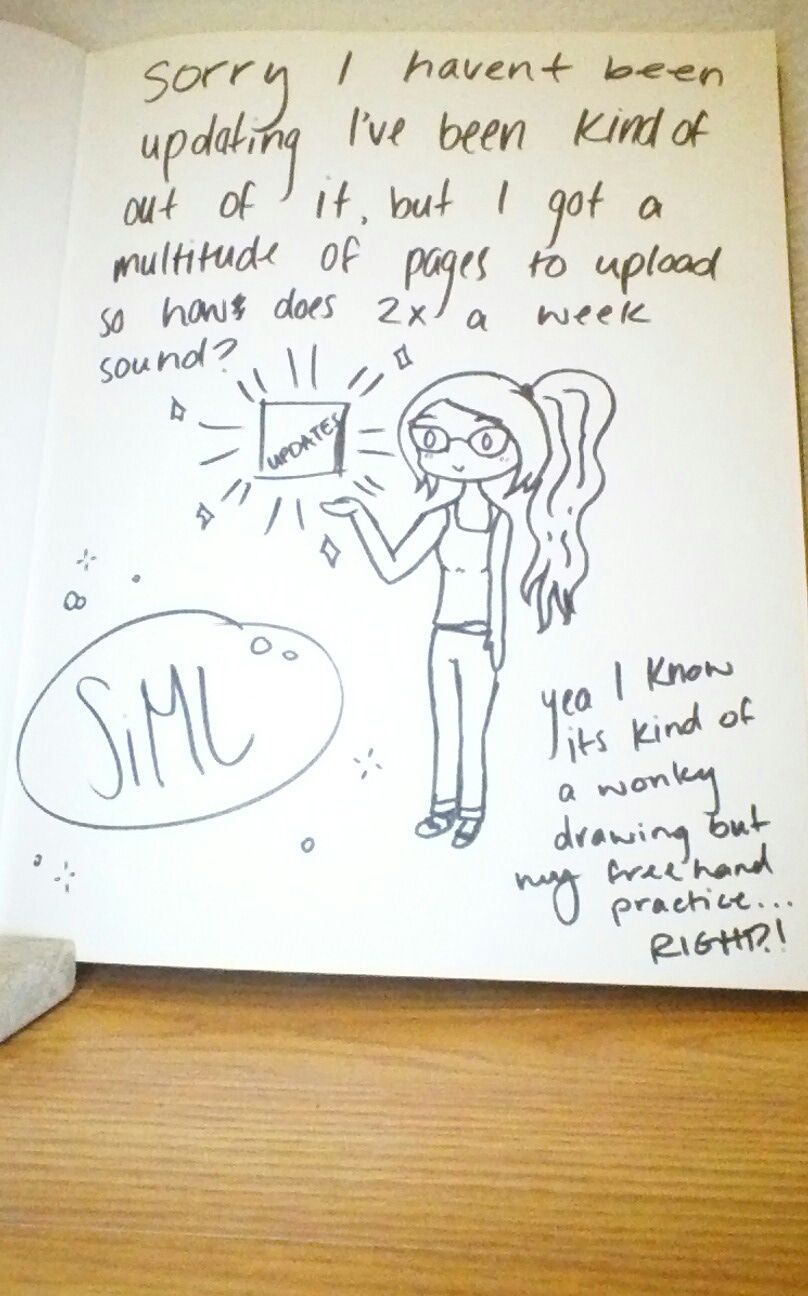 sorry I havent been
updating I've been kind of
out of it, but I got a
multitude of pages to upload
so how does 2x a week
sound?
UPDATES
SiML
yea I know
its kind of
a wonky
drawing but
my freehand
practice...
RIGHT?!